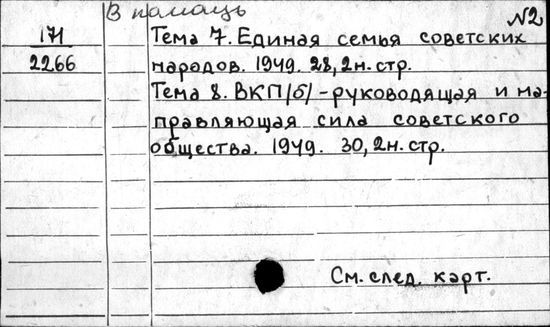 В помощь
№2
171
2266
Тема 7. Единая семья советских
народов. 1949. 28, 2н. стр.
Тема 8. ВКП/б/ - руководящая и на-
правляющая сила советского
общества. 1949. 30, 2н. стр.
См. след. карт.